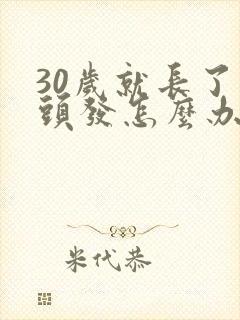 30歲就長了
頭發怎麼办
米代恭